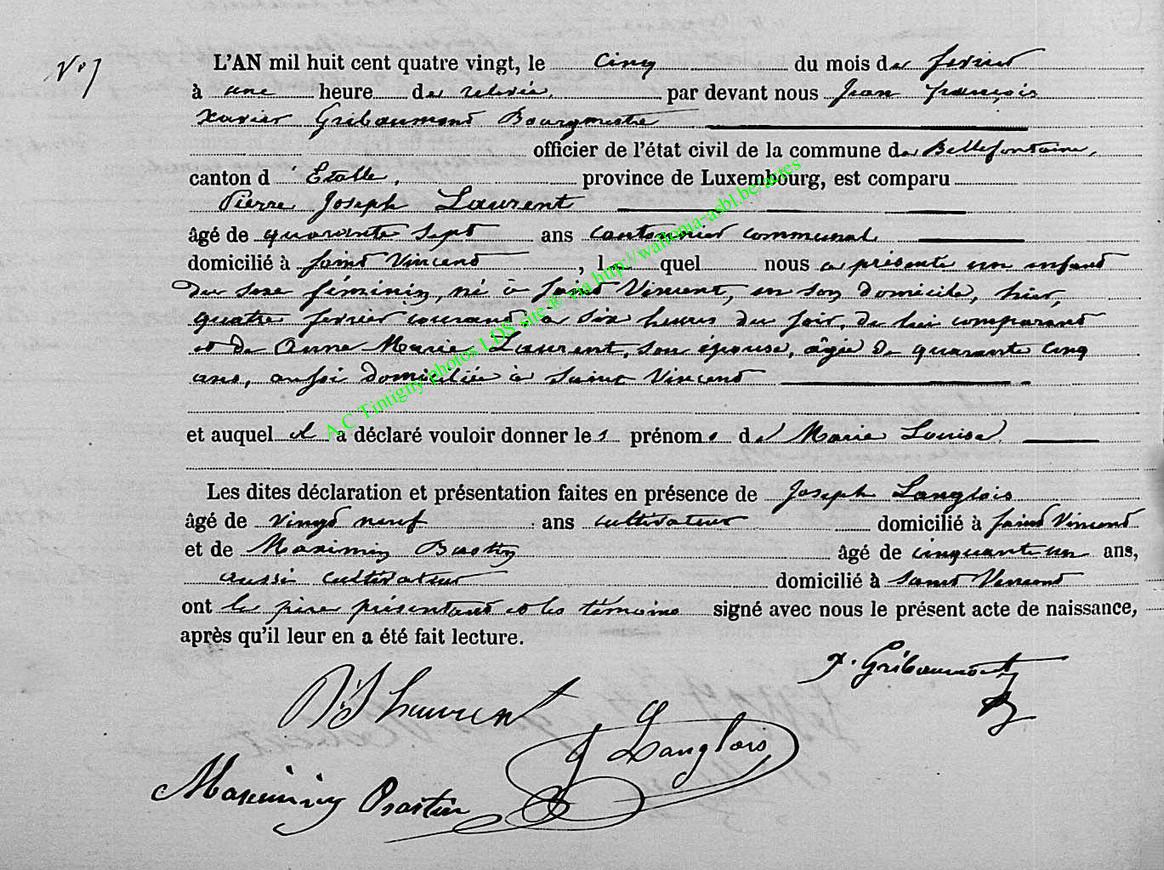 N° 7
L'AN mil huit cent quatre vingt, le cinq du mois de fevrier
à une heure de relevée, par devant nous Jean François
Xavier Gribaumont Bourgmestre
officier de l'état civil de la commune de Bellefontaine,
canton d'Etalle, province de Luxembourg, est comparu
Pierre Joseph Laurent
âgé de quarante sept ans cantonnier communal
domicilié à Saint Vincent, lequel nous a présenté un enfant
du sexe féminin, né à Saint Vincent, en son domicile, hier,
quatre fevrier courant à six heures du soir, de lui comparant
et de Anne Marie Laurent, son épouse, âgée de quarante cinq
ans, aussi domiciliée à Saint Vincent
et auquel il a déclaré vouloir donner les prénoms de Marie Louise
Les dites déclaration et présentation faites en présence de Joseph Langlois
âgé de vingt neuf ans cultivateur domicilié à Saint Vincent
et de Maximin âgé de cinquante un ans,
aussi cultivateur domicilié à Saint Vincent
ont le père présentant et les témoins signé avec nous le présent acte de naissance,
après qu'il leur en a été fait lecture.
Gribaumont
Laurent
J Langlois
Maximin
A.C Tintigny photos LDS site ® via http://wallonia-asbl.be-actes